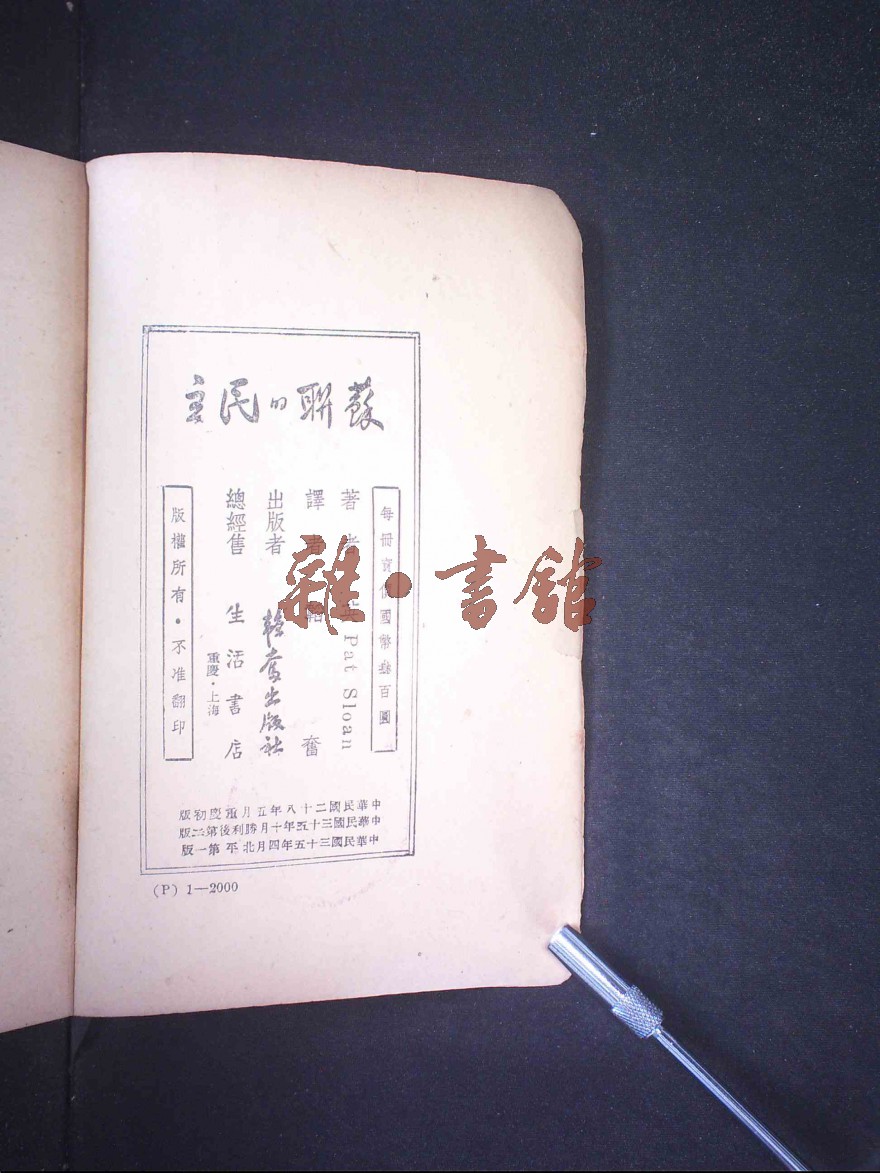 蘇聯的民主
每冊實價國幣叁百圓
著者 Pat Sloan
譯者 韜奮
出版者 韜奮出版社
總經售 生活書店
重慶·上海
版權所有·不准翻印
中華民國二十八年五月重慶初版
中華民國三十五年十月勝利後第二版
中華民國三十五年四月北平第一版
(P) 1—2000
雜·書館